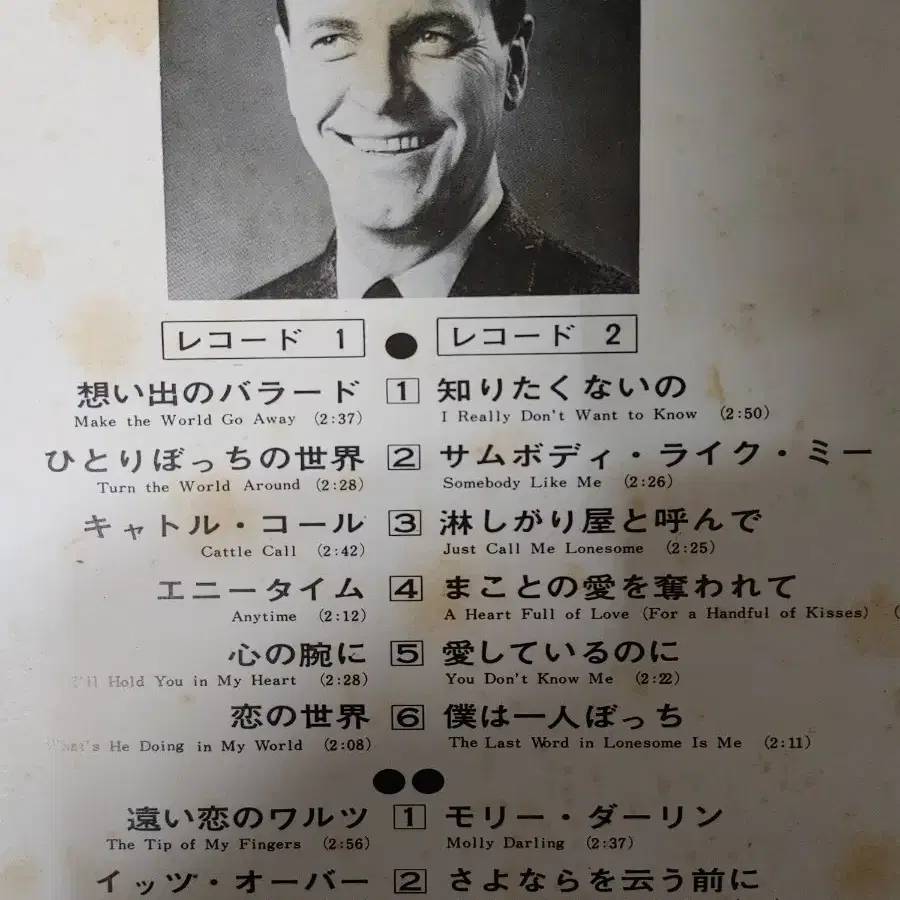 レコード 1
レコード 2
想い出のバラード 1 知りたくないの
Make the World Go Away (2:37) I Really Don't Want to Know (2:50)
ひとりぼっちの世界 2 サムボディ・ライク・ミー
Turn the World Around (2:28) Somebody Like Me (2:26)
キャトル・コール 3 淋しがり屋と呼んで
Cattle Call (2:42) Just Call Me Lonesome (2:25)
エニータイム 4 まことの愛を奪われて
Anytime (2:12) A Heart Full of Love (For a Handful of Kisses)
心の腕に 5 愛しているのに
I'll Hold You in My Heart (2:28) You Don't Know Me (2:22)
恋の世界 6 僕は一人ぼっち
What's He Doing in My World (2:08) The Last Word in Lonesome Is Me (2:11)
遠い恋のワルツ 1 モリー・ダーリン
The Tip of My Fingers (2:56) Molly Darling (2:37)
イッツ・オーバー 2 さよならを云う前に